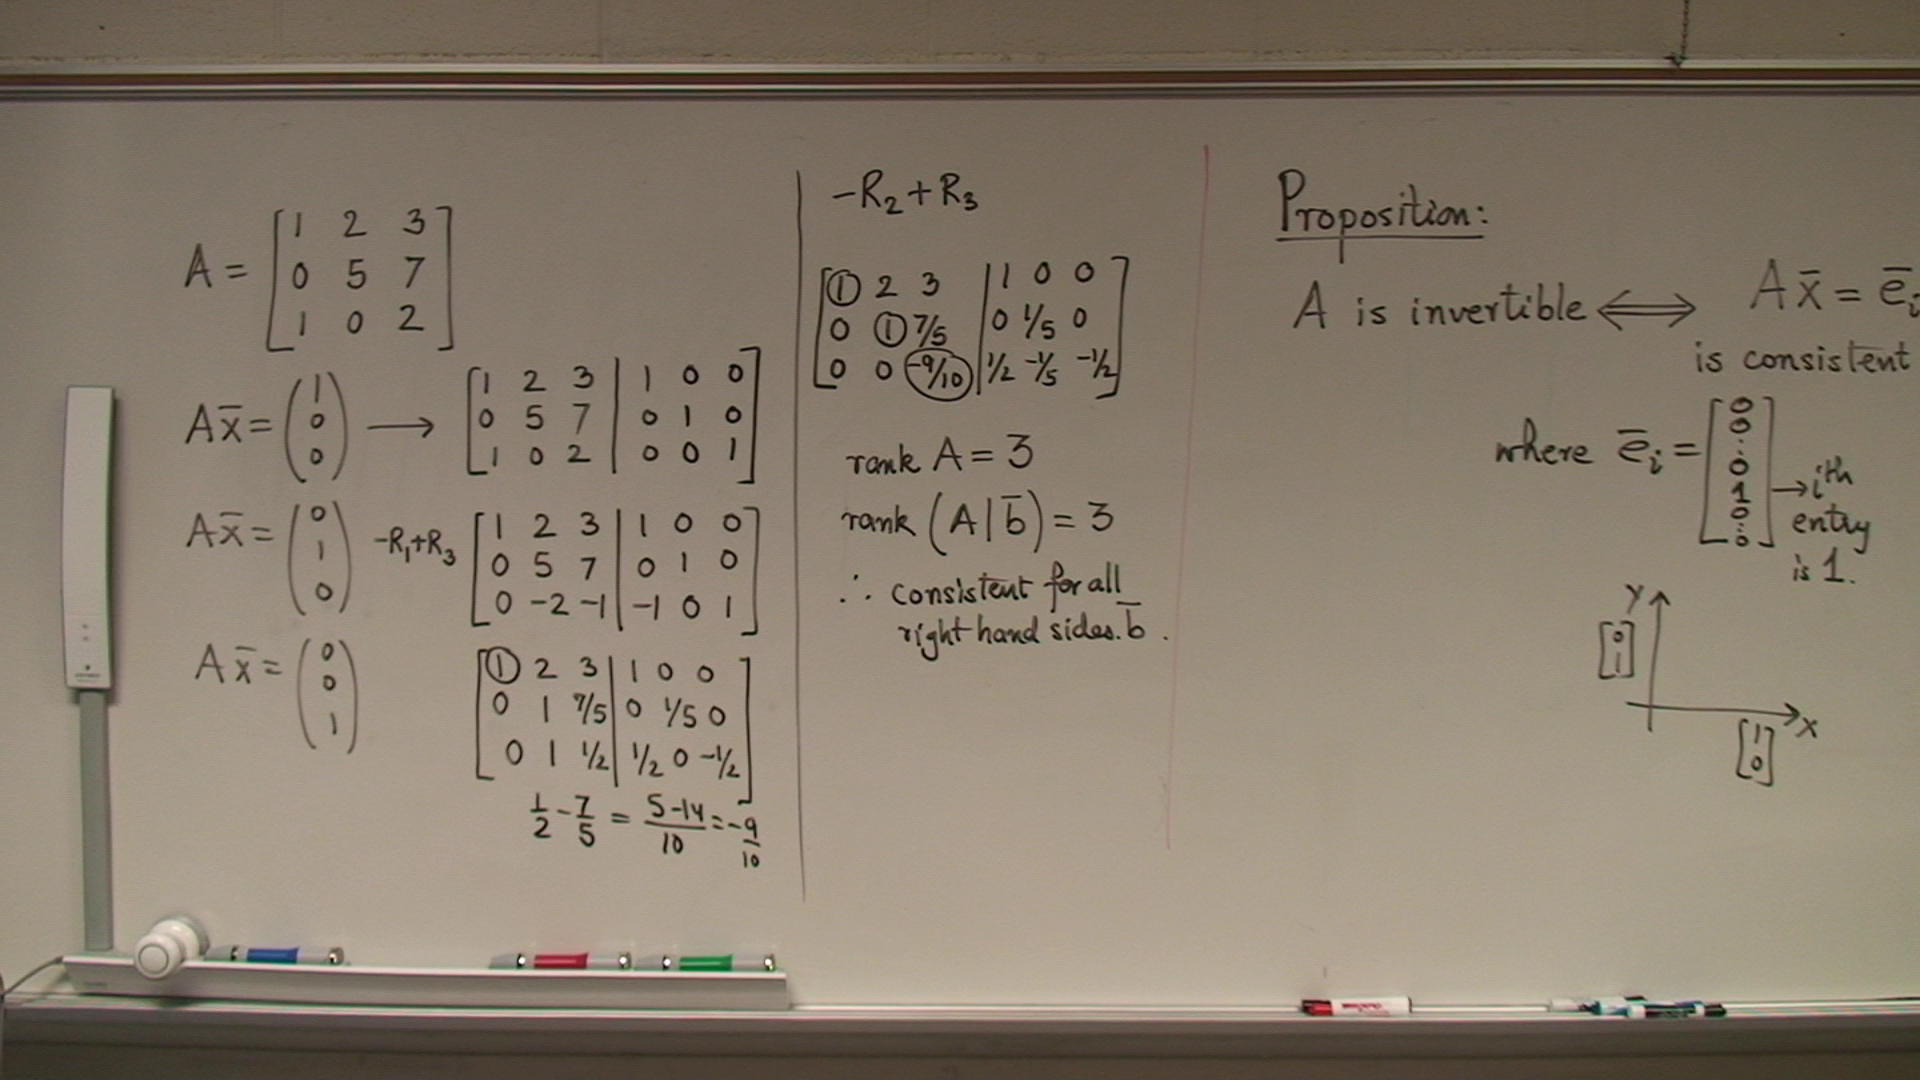 A = [1 2 3
0 5 7
1 0 2]
Ax̄ = (1
0
0) → [1 2 3 | 1 0 0
0 5 7 | 0 1 0
1 0 2 | 0 0 1]
Ax̄ = (0
1
0) -R₁+R₃ [1 2 3 | 1 0 0
0 5 7 | 0 1 0
0 -2 -1 | -1 0 1]
Ax̄ = (0
0
1)
[① 2 3 | 1 0 0
0 1 7/5 | 0 1/5 0
0 1 1/2 | 1/2 0 -1/2]
1/2 - 7/5 = (5-14)/10 = -9/10
-R₂+R₃
[① 2 3 | 1 0 0
0 ① 7/5 | 0 1/5 0
0 0 (-9/10) | 1/2 -1/5 -1/2]
rank A = 3
rank (A|b̄) = 3
∴ consistent for all
right hand sides. b̄.
Proposition:
A is invertible ⟺ Ax̄ = ēᵢ
is consistent
where ēᵢ = [0
0
:
0
1
0
:
0] → ith
entry
is 1.
y
[0
1]
x
[1
0]